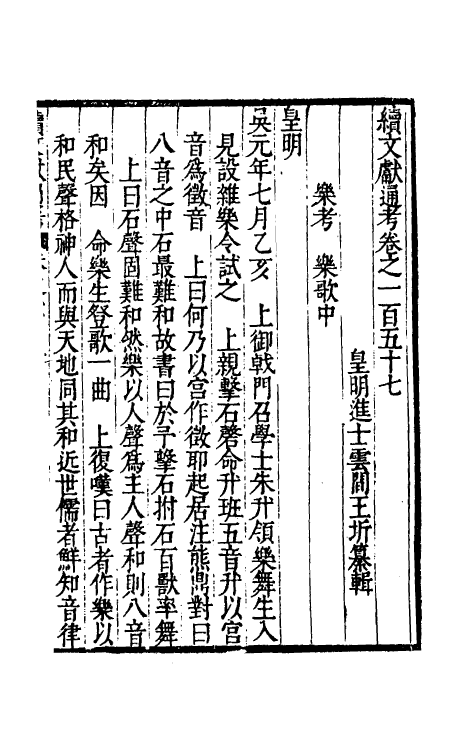 續文獻通考卷之一百五十七
皇明進士雲間王圻纂輯
樂考　樂歌中
皇明
吳元年七月乙亥　上御戟門召學士朱升領樂舞生入
見設雅樂令試之　上親擊石磬命升班五音升以宮
音爲徵音　上曰何乃以宮作徵耶起居注熊鼎對曰
八音之中石最難和故書曰於予擊石拊石百獸率舞
上曰石聲固難和然樂以人聲爲主人聲和則八音
和矣因　命樂生登歌一曲　上復嘆曰古者作樂以
和民聲格神人而與天地同其和近世儒者鮮知音律